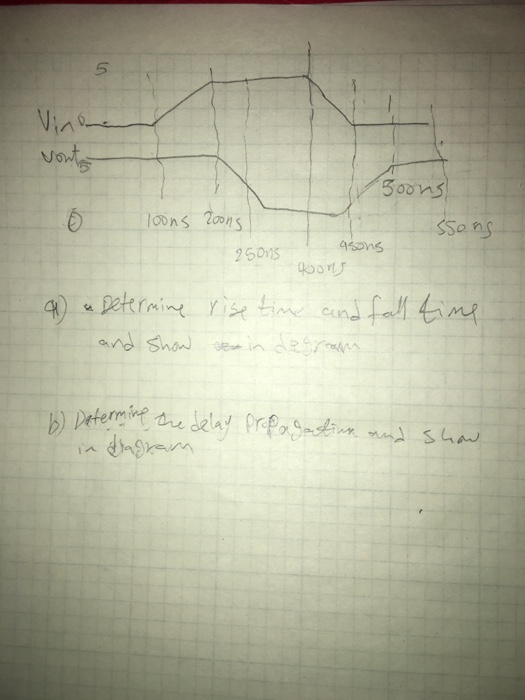 5
Vin 0
Vout 5
500ns
t 100ns 200ns 550ns
250ns 450ns
400ns
a) Determine rise time and fall time
and show in degram
b) Determine the delay Propagation and show
in diagram